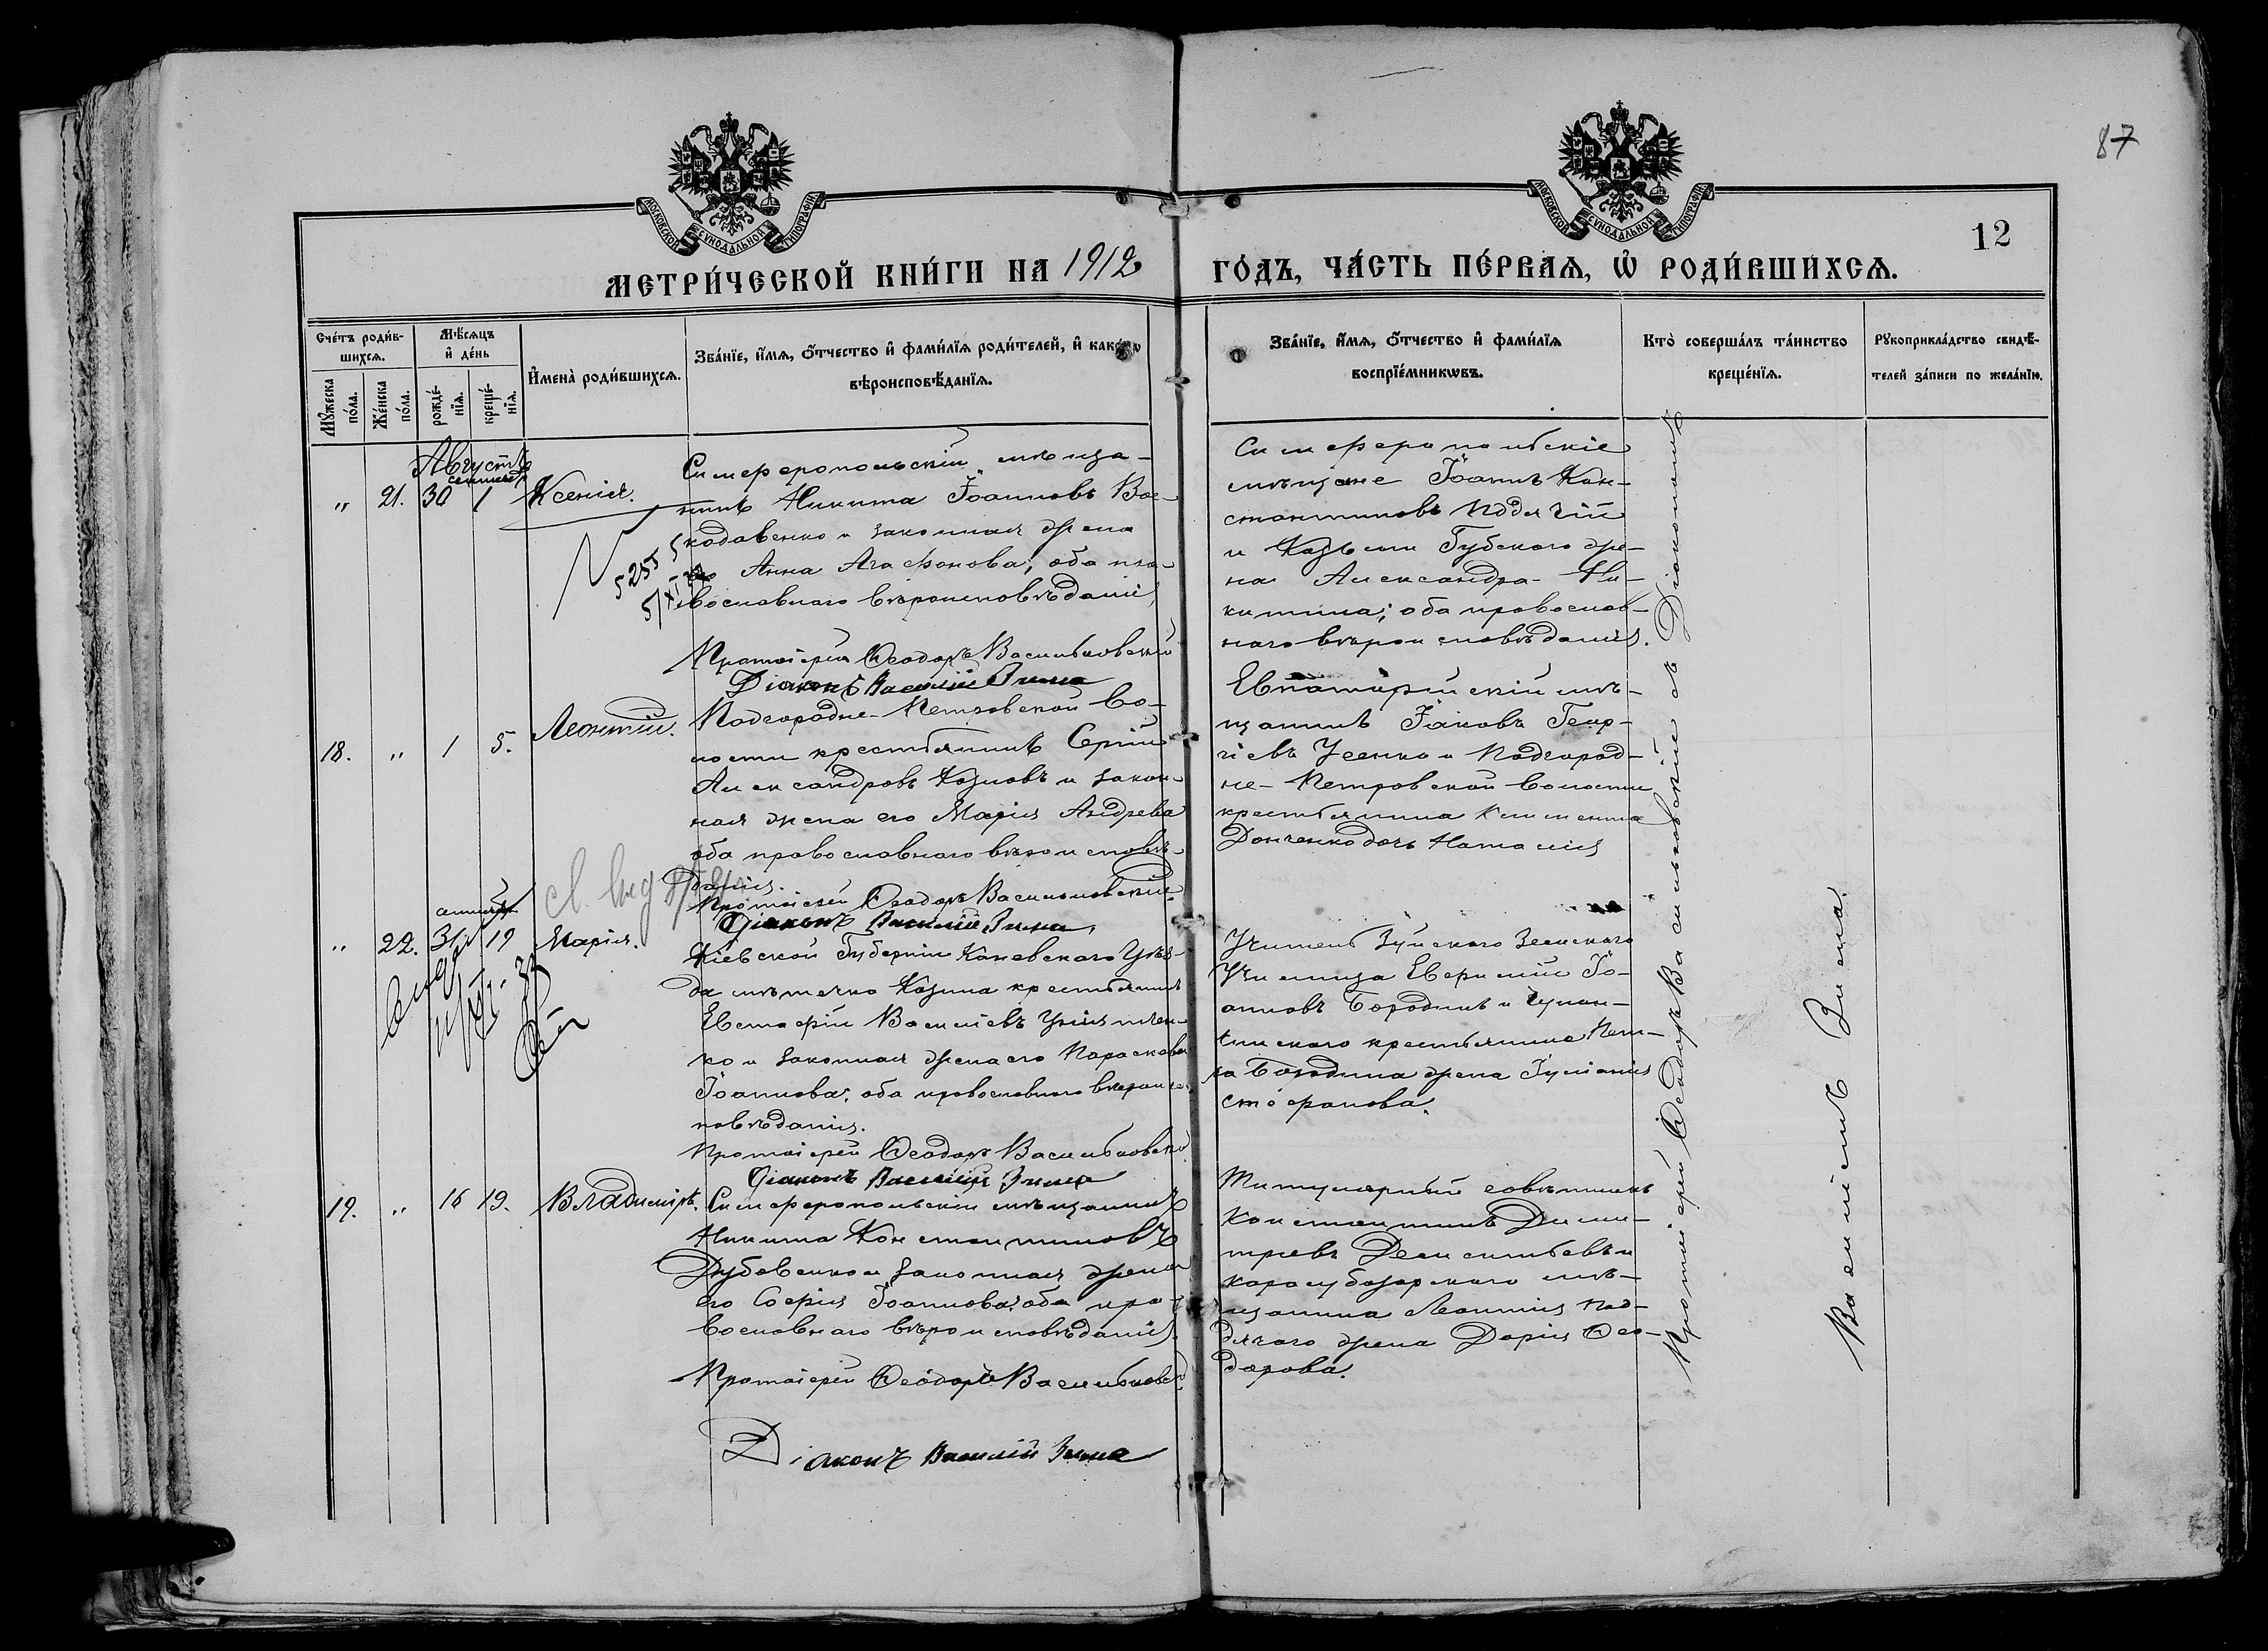 87
12
МОСКОВСКОЙ СѴНОДАЛЬНОЙ ТИПОГРАФІИ
МОСКОВСКОЙ СѴНОДАЛЬНОЙ ТИПОГРАФІИ
МЕТРИ́ЧЕСКОЙ КНИ́ГИ НА 1912
ГО́ДЪ, ЧА́СТЬ ПЕ́РВАѦ, Ѡ҆ РОДИ́ВШИХСѦ.
Сче́тъ роди́в-
шихсѧ.
Мꙋжеска по́ла.
Же́нска по́ла.
Мѣ́сѧцъ
и҆ де́нь
рожде́-
нїѧ.
креще́-
нїѧ.
И҆мена̀ роди́вшихсѧ.
Зва́нїе, и҆́мѧ, ѻ҆́тчество и҆ фами́лїѧ роди́телей, и҆ како́гѡ
вѣроисповѣ́данїѧ.
Зва́нїе, и҆́мѧ, ѻ҆́тчество и҆ фами́лїѧ
воспрїе́мникѡвъ.
Кто̀ соверша́лъ та́инство
креще́нїѧ.
Рꙋкоприкла́дство свидѣ́-
телей за́писи по жела́нїю.
Августъ
" 21. 30 1 Ксенія.
Симферопольскій мѣща-
нинъ Никита Іоанновъ Вос-
кодавенко и законная жена
его Анна Агафонова, оба пра-
вославнаго вѣроисповѣданія
5255
Протоіерей Ѳеодоръ Васильковскій
Діаконъ Василій Зима
Симферопольскіе
мѣщане Іоаннъ Кон-
стантиновъ Подячій
и Козьмы Губскаго же-
на Александра Ни-
китина; оба православ-
наго вѣроисповѣданія.
18. " 1 5. Леонтій.
Подгородне-Петровской во-
лости крестьянинъ Сергій
Александровъ Козловъ и закон-
ная жена его Марія Андрева
оба православнаго вѣроисповѣ-
данія.
Протоіерей Ѳеодоръ Васильковскій
Діаконъ Василій Зима
Евпаторійскій мѣ-
щанинъ Іаковъ Геор-
гіевъ Усенко и Подгород-
не-Петровской волости
крестьянина Климента
Донченко дочь Наталія
" 22. 31 19 Марія.
Кіевской Губерніи Каневскаго Уѣз-
да мѣстечка Козина крестьянинъ
Евстафій Василіевъ
ко и законная жена его Параскева
Іоаннова, оба православнаго вѣроис-
повѣданія.
Протоіерей Ѳеодоръ Васильковскі
Діаконъ Василій Зима
Учитель Зуйскаго Земскаго
Училища Евфимій Іо-
анновъ Бородинъ и
крестьянина Пет-
ра Бородина жена Іуліанія
Стефанова.
19. " 16 19. Владиміръ.
Симферопольскій мѣщанинъ
Никита Константиновъ
Дубовенко и законная жена
его Софія Іоаннова, оба пра-
вославнаго вѣроисповѣданія.
Протоіерей Ѳеодоръ Васильковск
Діаконъ Василій Зима
Титулярный совѣтникъ
Константинъ Дими-
тріевъ Дементьевъ и
карасубазарскаго мѣ-
щанина Леонтія Под-
дячаго жена Дарія Ѳео-
дорова.
Протоіерей Ѳеодоръ Васильковскій съ Діакономъ
Василіемъ Зима.